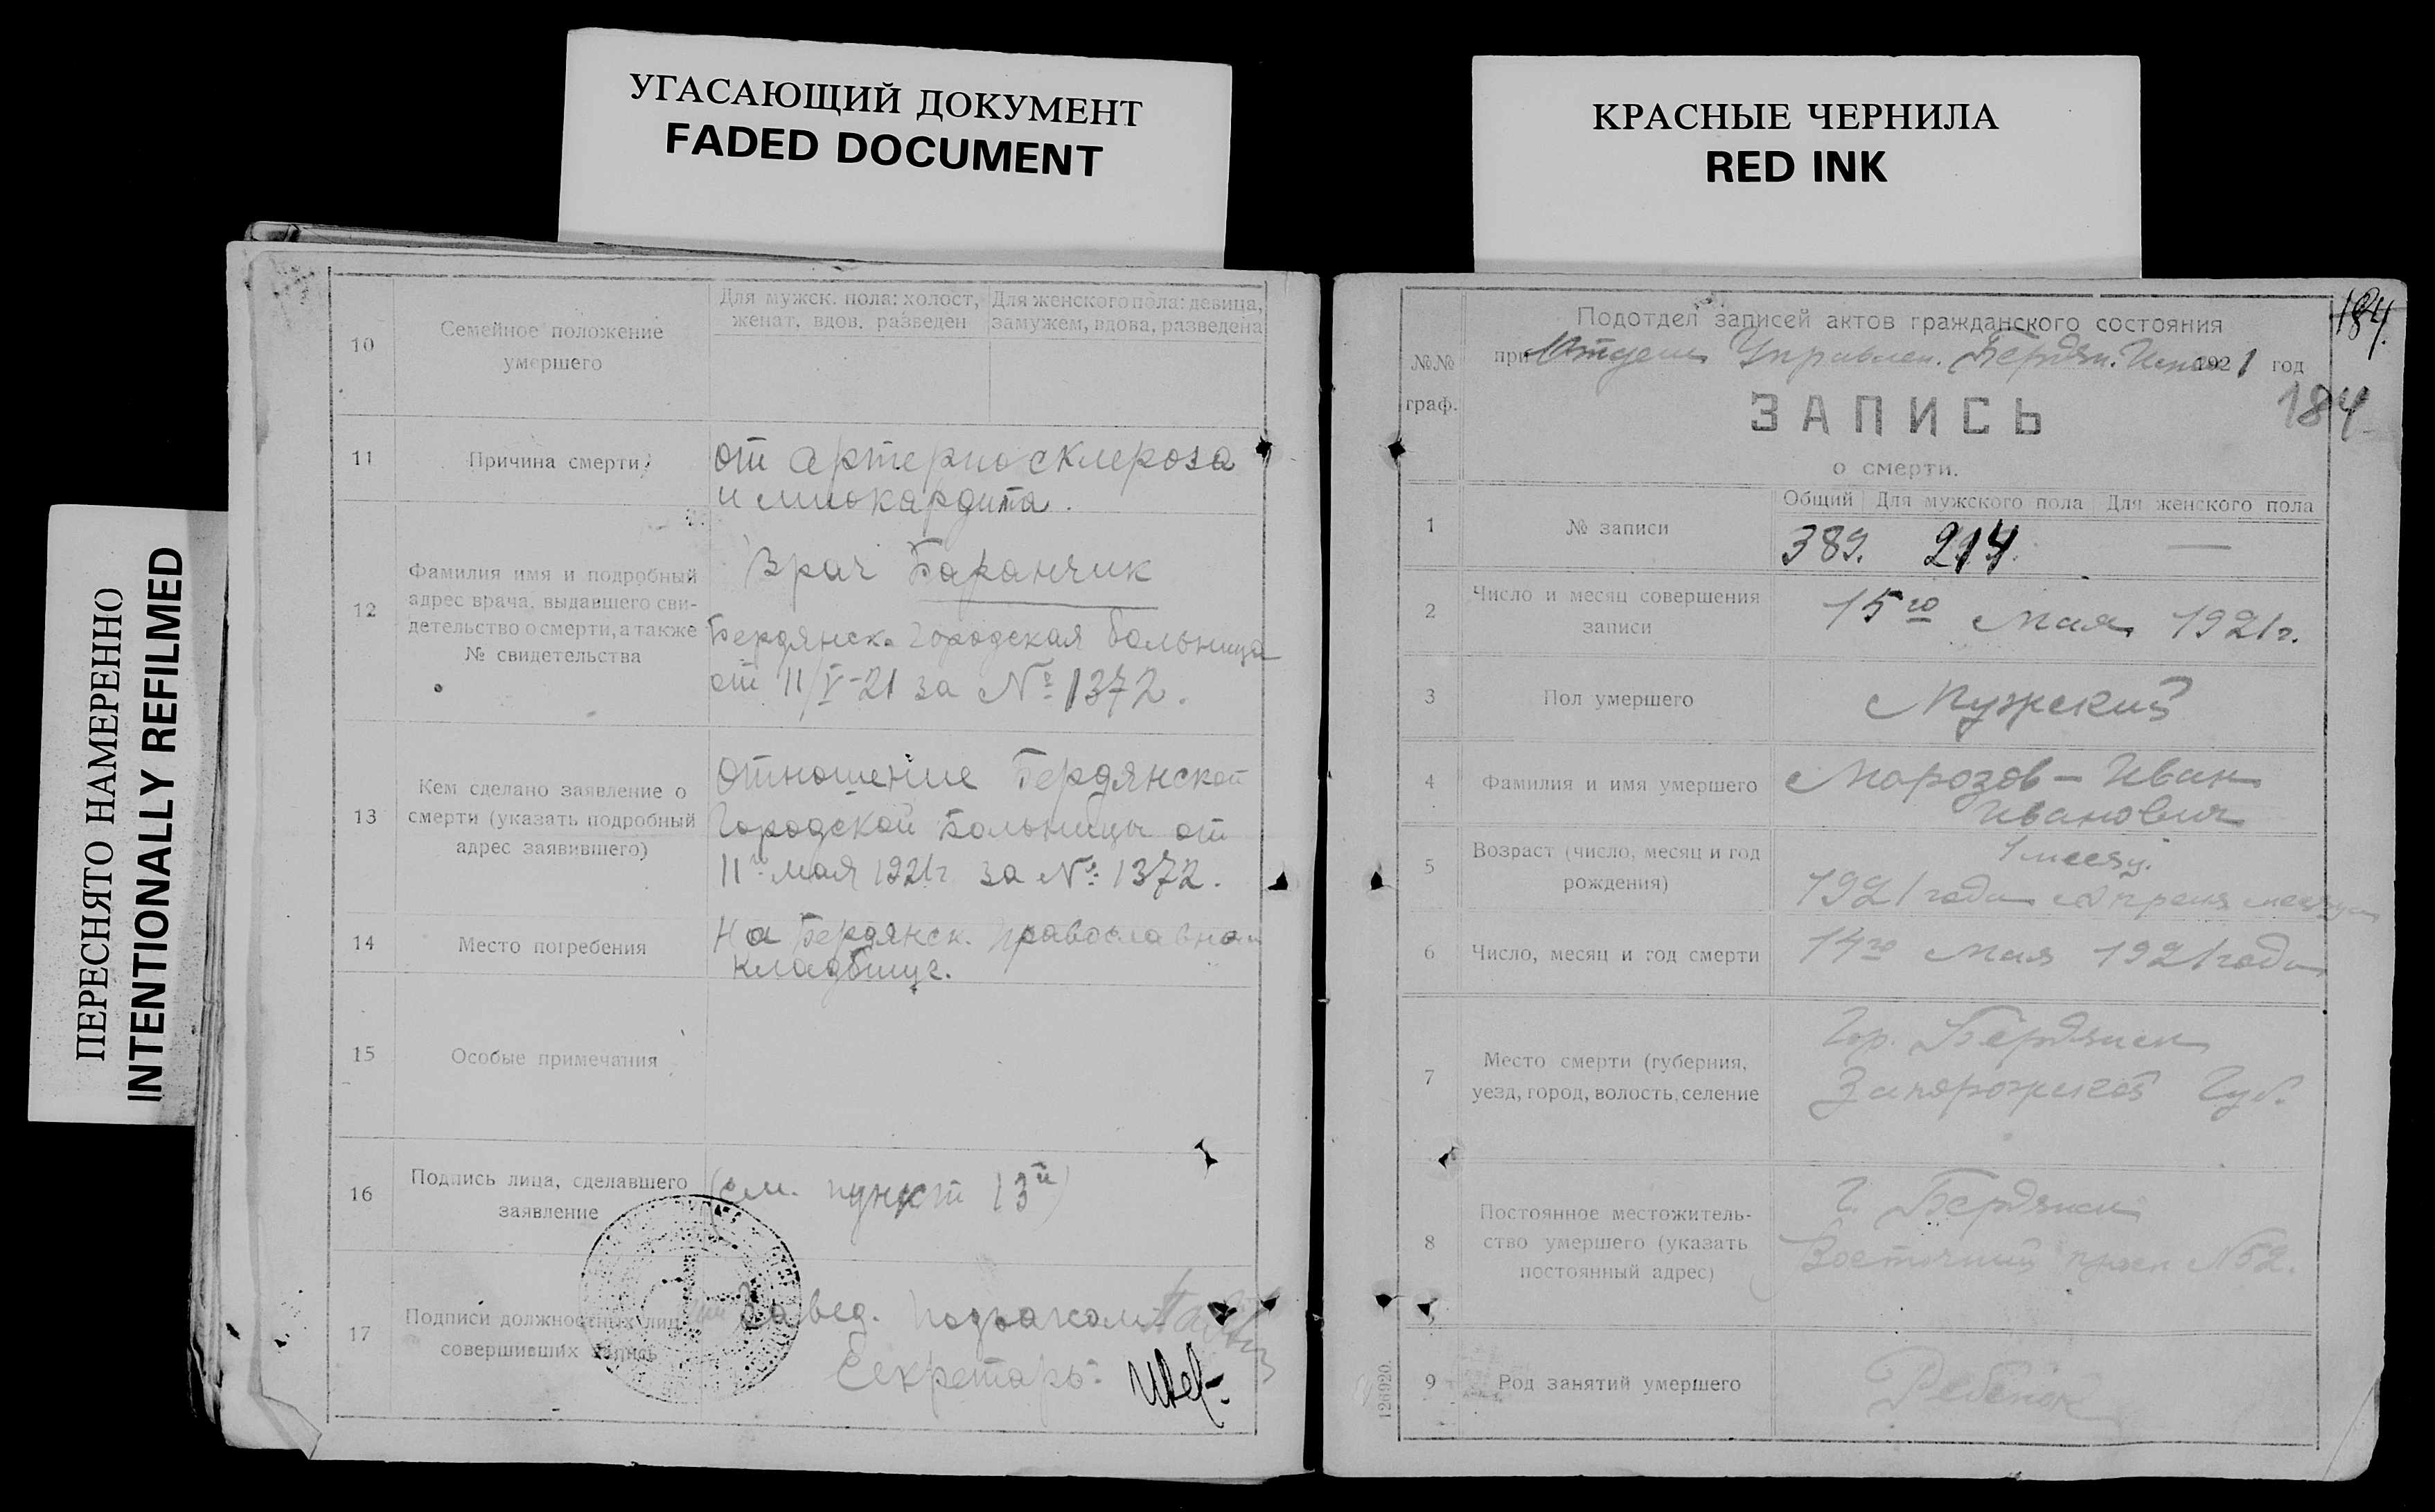 УГАСАЮЩИЙ ДОКУМЕНТ
FADED DOCUMENT
КРАСНЫЕ ЧЕРНИЛА
RED INK
ПЕРЕСНЯТО НАМЕРЕННО
INTENTIONALLY REFILMED
10
Семейное положение
умершего
Для мужск. пола: холост,
женат, вдов, разведен
Для женского пола: девица,
замужем, вдова, разведена
11
Причина смерти
от артериосклероза
и миокардита.
12
Фамилия имя и подробный
адрес врача, выдавшего сви-
детельство о смерти, а также
№ свидетельства
Врач Баранчик
Бердянск. Городская больница
от 11/V-21 за № 1372.
13
Кем сделано заявление о
смерти (указать подробный
адрес заявившего)
Отношение Бердянской
Городской Больницы от
11го мая 1921г за №: 1372.
14
Место погребения
На Бердянск. православном
кладбище.
15
Особые примечания
16
Подпись лица, сделавшего
заявление
(см. пункт 13й)
17
Подписи должностных лиц,
совершивших запись
Завед.
Секретарь:
184
№№
граф.
Подотдел записей актов гражданского состояния
при Отделе Управлен. Бердян. 1921 год
184
ЗАПИСЬ
о смерти.
1
№ записи
Общий Для мужского пола Для женского пола
389. 214. —
2
Число и месяц совершения
записи
15го Мая 1921г.
3
Пол умершего
Мужский
4
Фамилия и имя умершего
Морозов - Иван
Иванович
5
Возраст (число, месяц и год
рождения)
1 месяц.
1921 года апреля месяца
6
Число, месяц и год смерти
14го Мая 1921 года
7
Место смерти (губерния,
уезд, город, волость, селение
Гор. Бердянск
Запорожской Губ.
8
Постоянное местожитель-
ство умершего (указать
постоянный адрес)
Г. Бердянск
Восточный просп №52.
9
Род занятий умершего
Ребенок
126920.